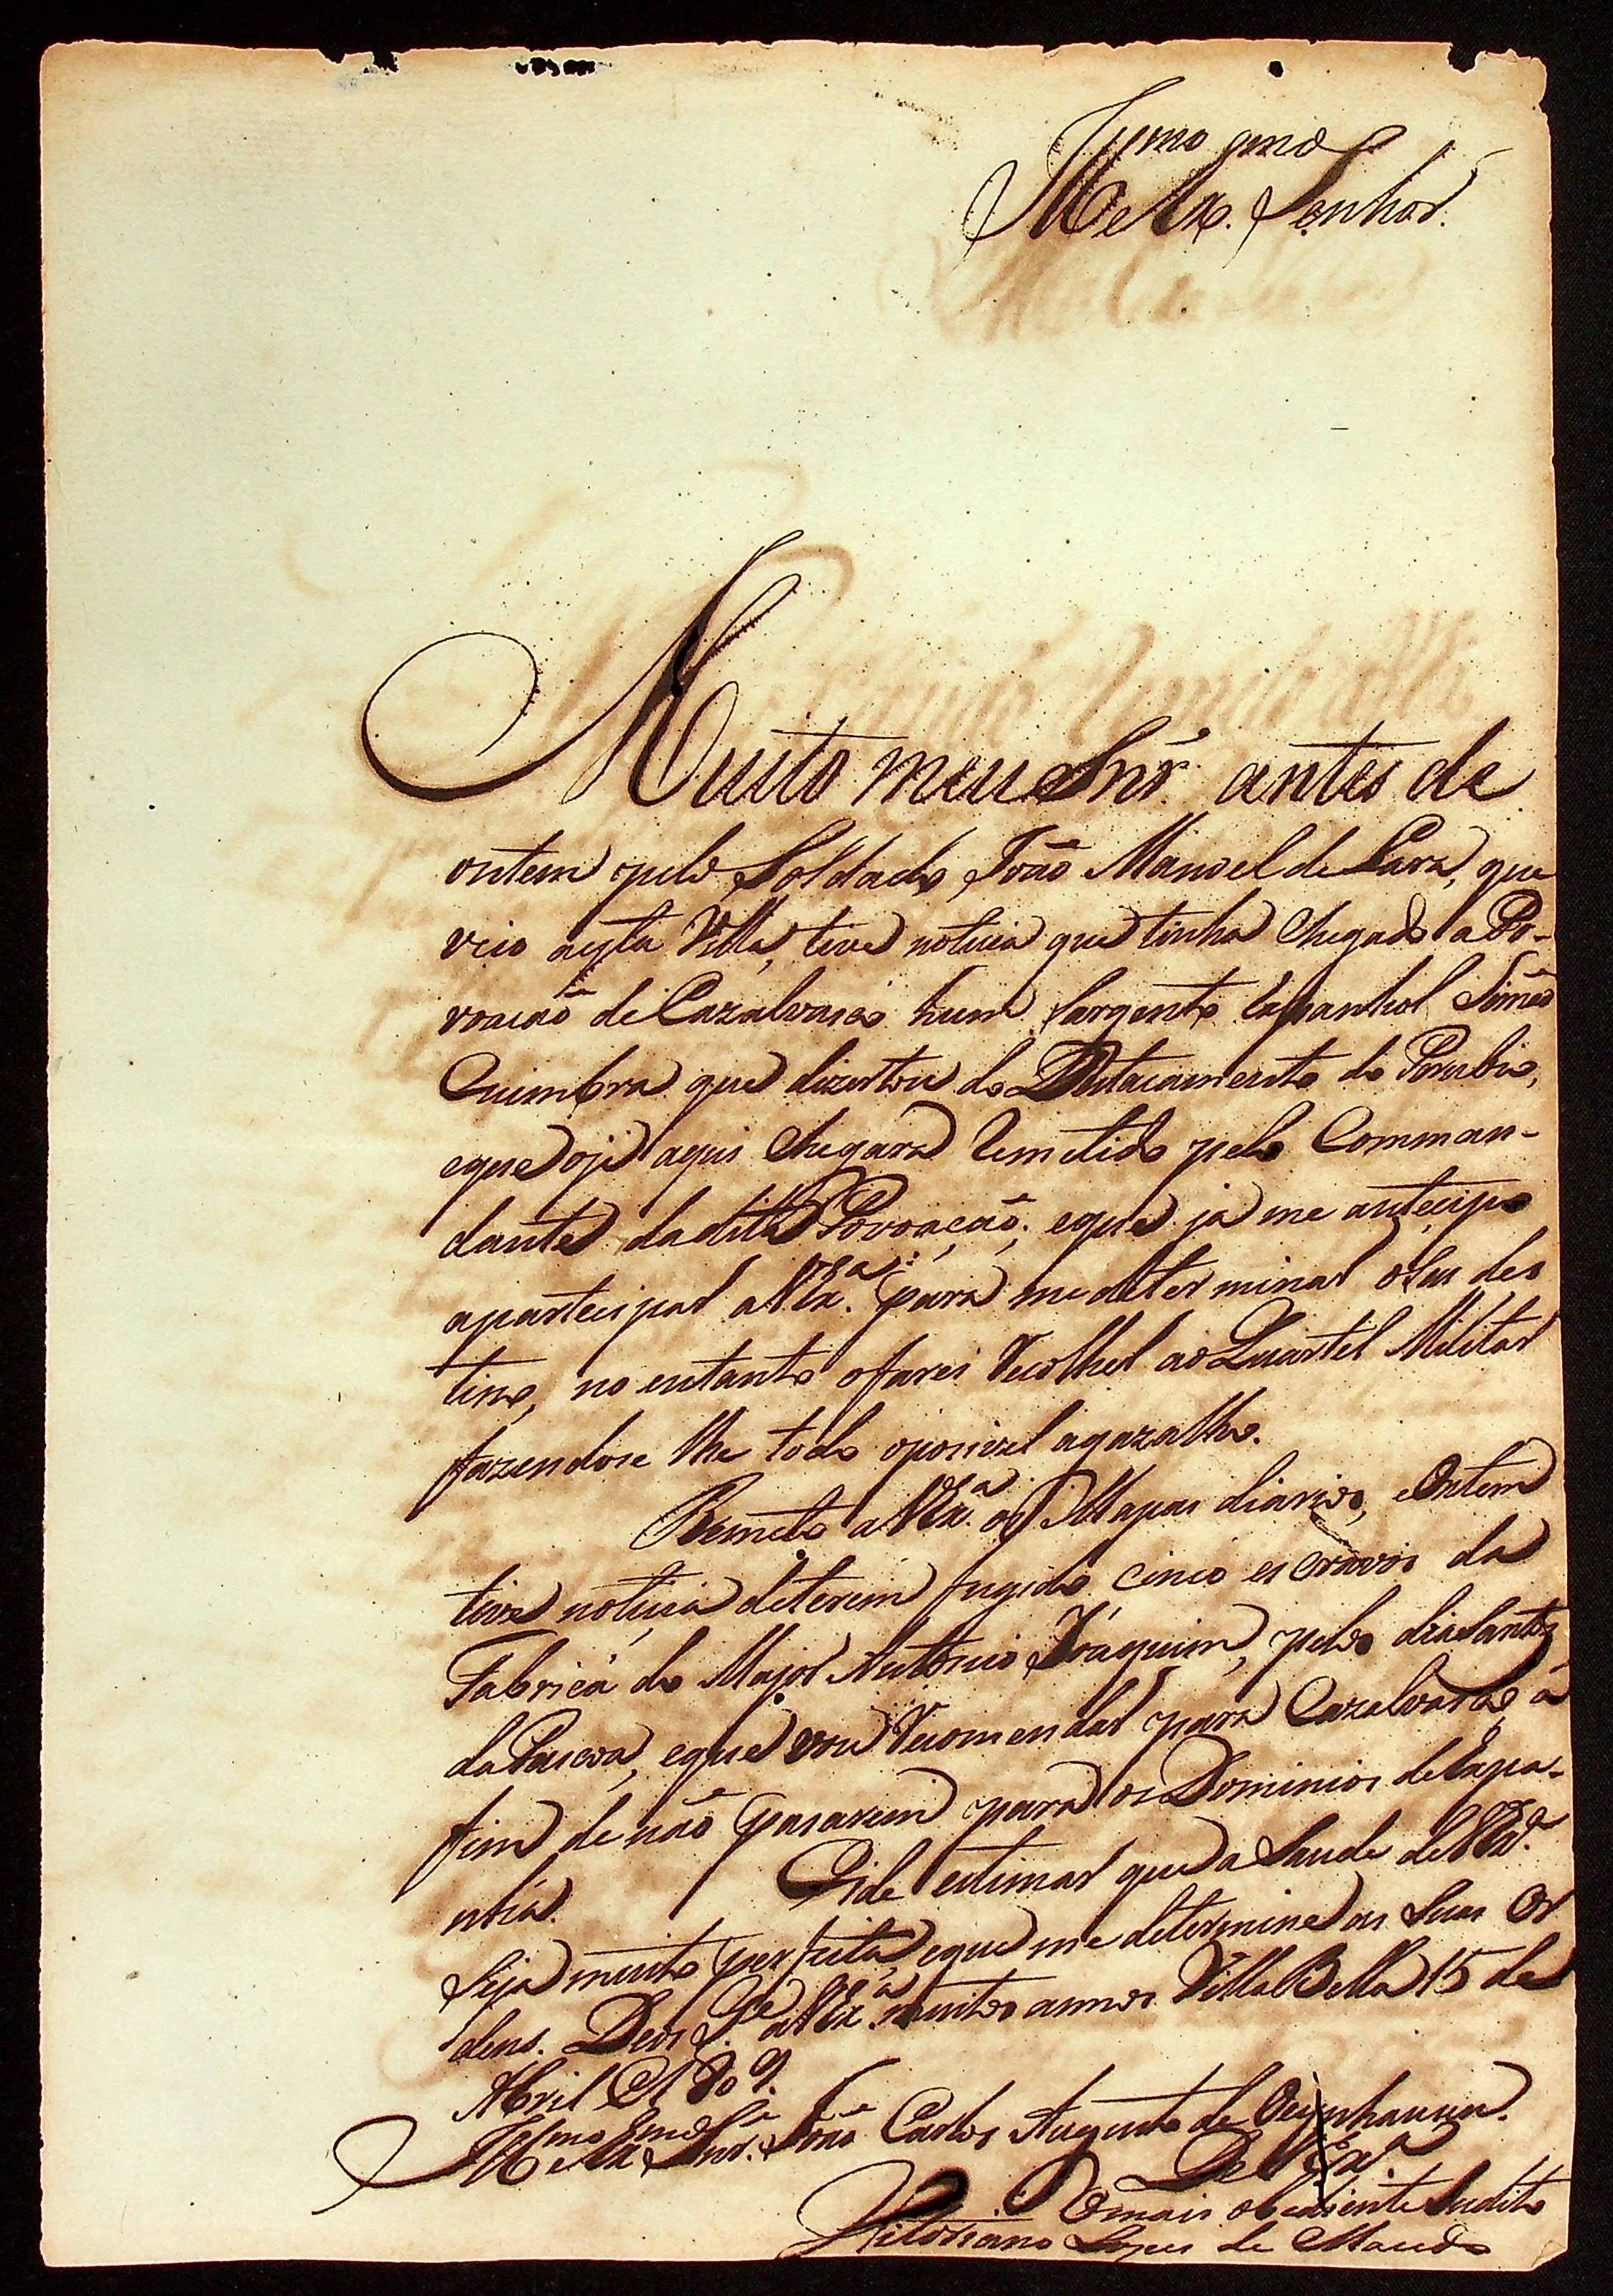 Illmo e Exmo Senhor.
Muito meu Snr. antes de
ontem pelo Soldado João Manoel de Lara, que
veio a esta Villa, tive noticia que tinha chegado a Po-
voação de Cazalvasco hum Sargento Espanhol Simão
Cuimbra que dizertou do Destacamento do Porubio,
e que oje aqui chegara remetido pelo Comman-
dante da dita Povoação; e que ja me antecipo
a partecipar a V. Exa. para me determinar o seu des
tino, no entanto o farei recolher ao Quartel Militar
fazendose lhe todo o posivel agazalho.
Remeto a V. Exa. os Mapas diarios, e Ontem
tive noticia de terem fugido cinco escravos da
Fabrica do Major Antonio Joaquim, pelo dia Santo
da Pascoa, e que vou recomendar para Cazalvasco a
fim de não pasarem para os Dominios de Espa-
nha. Ei de estimar que a Saude de V. Exa.
Seja muito perfeita, e que me determine as Suas Or
dens. Deos Gde. a V. Exa. muitos annos Villa Bella 15 de
Abril de 1809.
Illmo e Exmo Snr. João Carlos Augusto de Oeynhausen.
De V. Exa.
O mais obediente Subdito
Vitoriano Lopes de Macedo